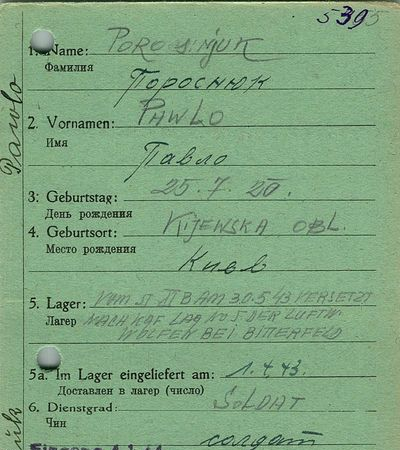 5395
1. Name: POROSNJUK
Фамилия
Пороснюк
2. Vornamen: PAWLO
Имя
Павло
3: Geburtstag: 25. 7. 20.
День рождения
4. Geburtsort: KIJEWSKA OBL.
Место рождения
Киев
5. Lager: VOM ST III B AM 30.5.43 VERSETZT
Лагер NACH KGF LAG NO 5 DER LUFTW.
WOLFEN BEI BITTERFELD
5a. Im Lager eingeliefert am: 1. 4. 43.
Доставлен в лагер (число)
6. Dienstgrad: SOLDAT
Чин
солдат
Pawlo